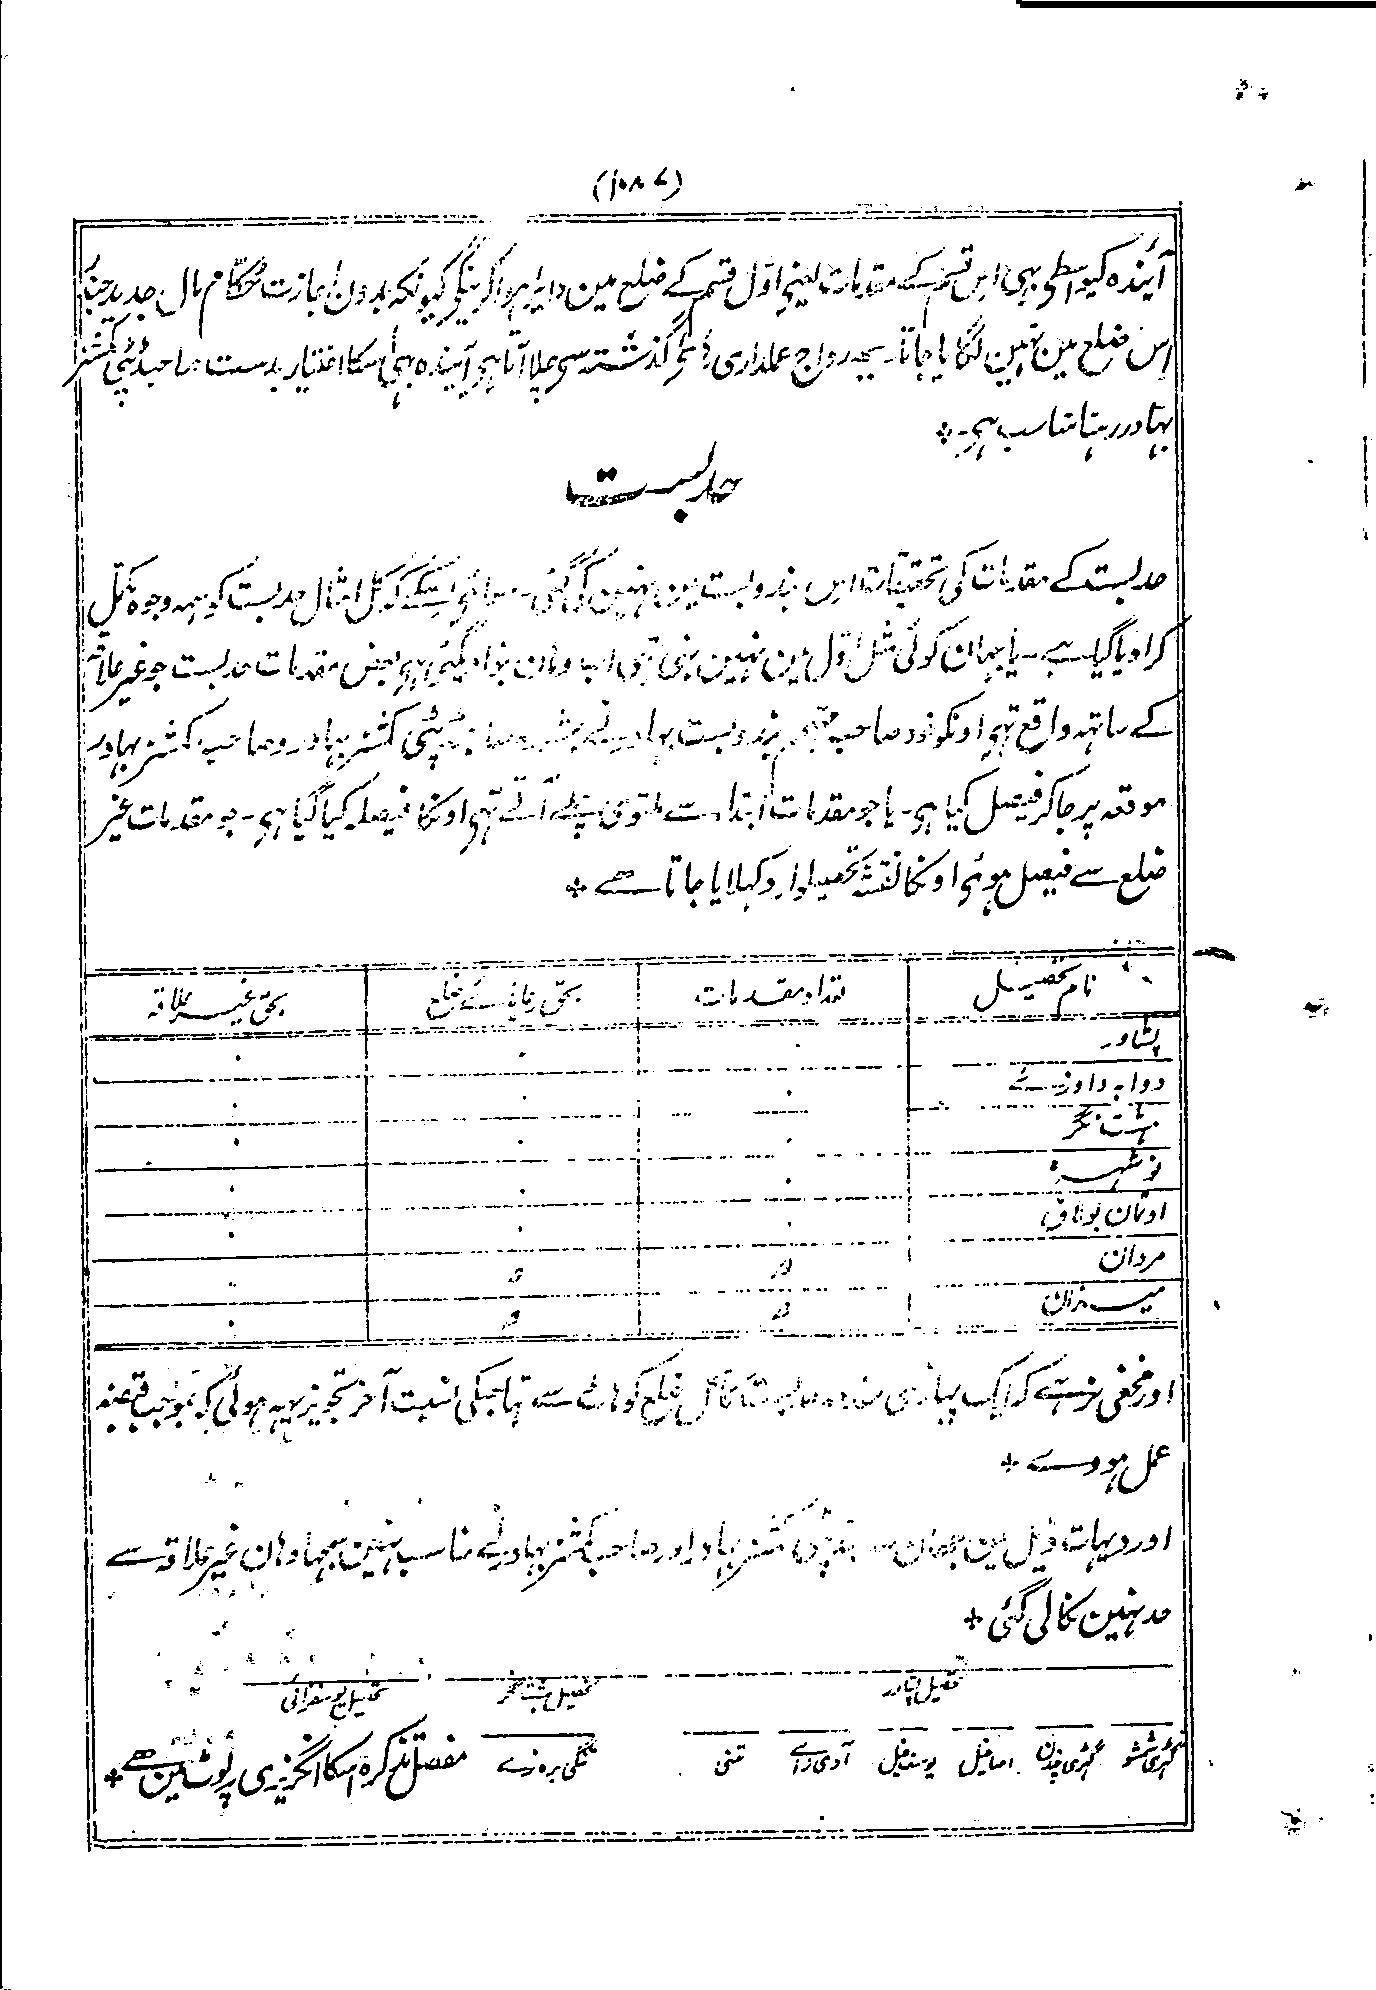 (۱۰۸۷)
آیٔندہ کیواسطی بہی اس قسم کے مقدمات یعنی اوّل قسم کے ضلع مین دایر ہوا کرینگی کیونکہ بدون اجازت حُکّام مال جدید
اِس ضلع مین نہین لگایا جاتا۔ یہہ رواج عملداری گذشتہ سی چلا آتا ہی آیندہ بہی اسکا اختیار بدست صاحب ڈپٹی کمشنر
بہادر رہنا مناسب ہی۔ *
حدبست
حدبست کے مقدمات کی تحقیقات اس بندوبست مین نہین کی گئی۔ سوائی اسکے کہ کل امثال حدبست کو بہمہ وجوہ مکمّل
کرا دیا گیا ہے۔ یا جہان کوئی مثل اوّل مین نہین بنی تہی اب وہان بنوا دیگئی ہی بعض مقدمات حدبست جو غیر علاقہ
کے ساتہہ واقع تہی اونکو خود صاحب مہتمم بندوبست بہادر نے صاحب ڈپٹی کمشنر بہادر و صاحب کمشنر بہادر
موقعہ پر جا کر فیصل کیا ہی۔ یا جو مقدمات ابتدا سے ملتوی چلے آتے تہی اونکا فیصلہ کیا گیا ہی۔ جو مقدمات غیر
ضلع سے فیصل ہوئی اونکا نقشہ تحصیلوار دکہلایا جاتا ہے *
نام تحصیل تعداد مقدمات بحق رعایائے ضلع بحق غیر علاقہ
پشاور ۰ ۰ ۰
دوابہ داودزئے ۰ ۰ ۰
ہشت نگر ۰ ۰ ۰
نوشہرہ ۰ ۰ ۰
اوتمان بولاق ۰ ۰ ۰
مردان
میزان
اور مخفی نرہے کہ ایک پہاڑی ضلع کوہاٹ سے تہا جسکی نسبت آخر تجویز یہہ ہوئی کہ بموجب قبضہ
عمل ہووے *
اور دیہات ذیل مین جہان صاحب ڈپٹی کمشنر بہادر اور صاحب کمشنر بہادر نے مناسب نہین سمجہا وہان غیر علاقہ سے
حد نہین نکالی گئی *
تحصیل پشاور تحصیل ہشت نگر تحصیل یوسفزائی
یوسف خیل آدی زائے تنگی برہ زے مفصل تذکرہ اسکا انگریزی رپوٹ مین ہے *